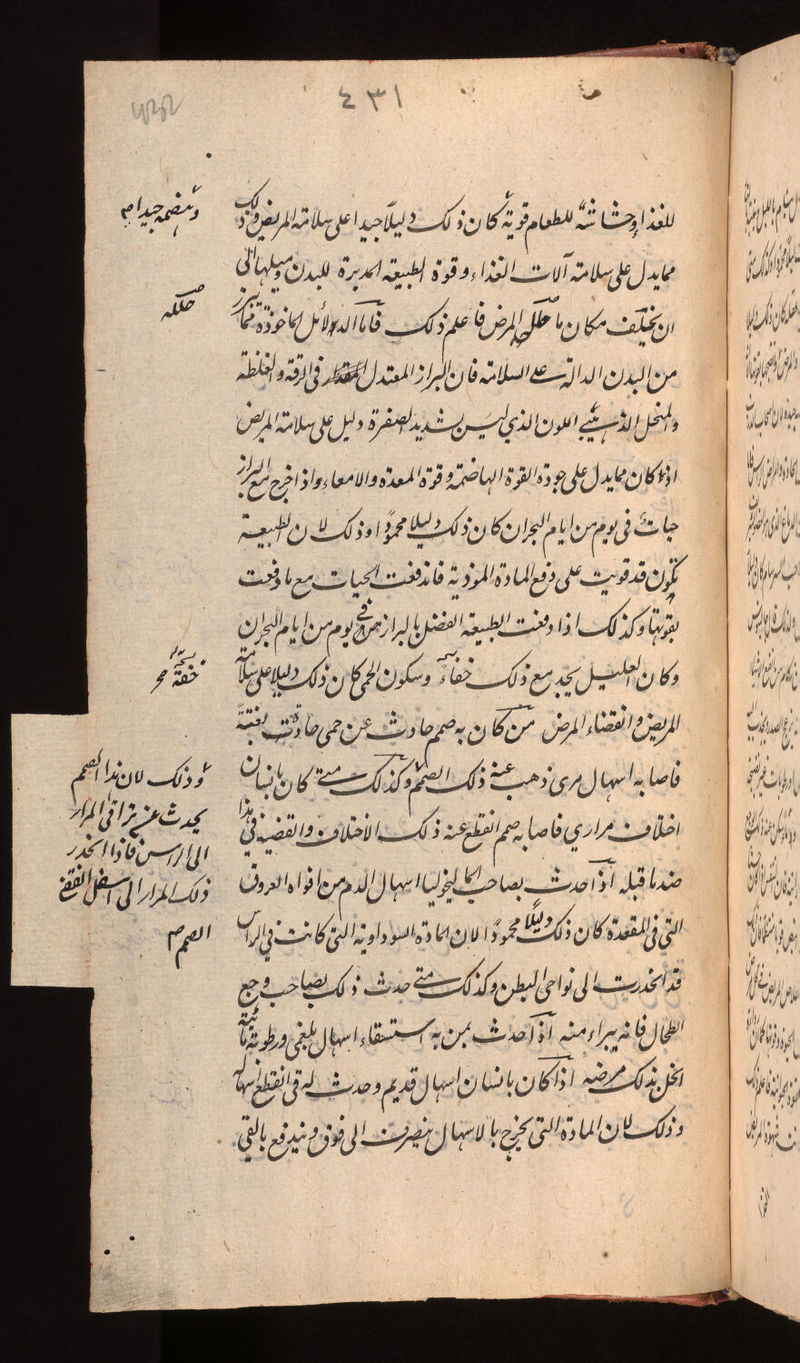 ٤٣١
للغذاء وحشاشة للطعام قوية كان ذلك دليلا جيدا على سلامة المريض وذلك
مما يدل على سلامة آلات الغذاء وقوة الطبيعة المدبرة للبدن وميلها الى
ان يختلف مكان ما حلله المرض فاعلم ذلك فاما الدلائل الماخوذة مما يبرز
من البدن الدالة على السلامة فان البراز المعتدل المقدار في الرقة والغلظة
والمنحل الذي اللون الذي ليس بشديد الصفرة دليل على سلامة المريض
اذ كان مما يدل على جودة القوة الهاضمة وقوة المعدة والامعاء واذا خرج مع البراز
حيات في يوم من ايام البحران كان ذلك دليلا محمودا وذلك لان الطبيعة
تكون قد قويت على دفع المادة الموذية فاندفعت الحيات مع ما دفعت
بقوتها وكذلك اذا دفعت الطبيعة الفضل بالبراز في يوم من ايام البحران
وكان العليل يجد مع ذلك خفاء وسكون الحمى كان ذلك دليلا على سلامة
المريض وانقضاء المرض من كان به صمم حادث عن حمى حادثت بغتة
فاصابه اسهال مرى ذهب عنه ذلك الصمم وكذلك متى كان بانسان
اختلاف مراري فاصابه صمم انقطع عنه ذلك الاختلاف والقضية في هذا
ضد ما قبله اذا حدث بصاحب الماليخوليا اسهال الدم من افواه العروق
التي في المقعدة كان ذلك دليلا محمودا لان المادة السوداوية التي كانت في الراس
قد انحدرت الى نواحي البطن وكذلك متى حدث ذلك بصاحب وجع
الطحال فانه يبراء منه اذا حدث بمن به استسقاء اسهال بلغمي ورطوبة مائية
انحل بذلك مرضه اذا كان بانسان اسهال قديم وحدث له قي انقطع اسهاله
وذلك لان المادة التي يخرج بالاسهال ينصرف الى فوق ويندفع بالقي
ويهضمه جيدا صح
حلله
خفة صح
وذلك لان هذا الصمم
يحدث عن تراقي المرار
الى الراس فاذا انحدر
ذلك المرار الى اسفل انقطع
الصمم صح